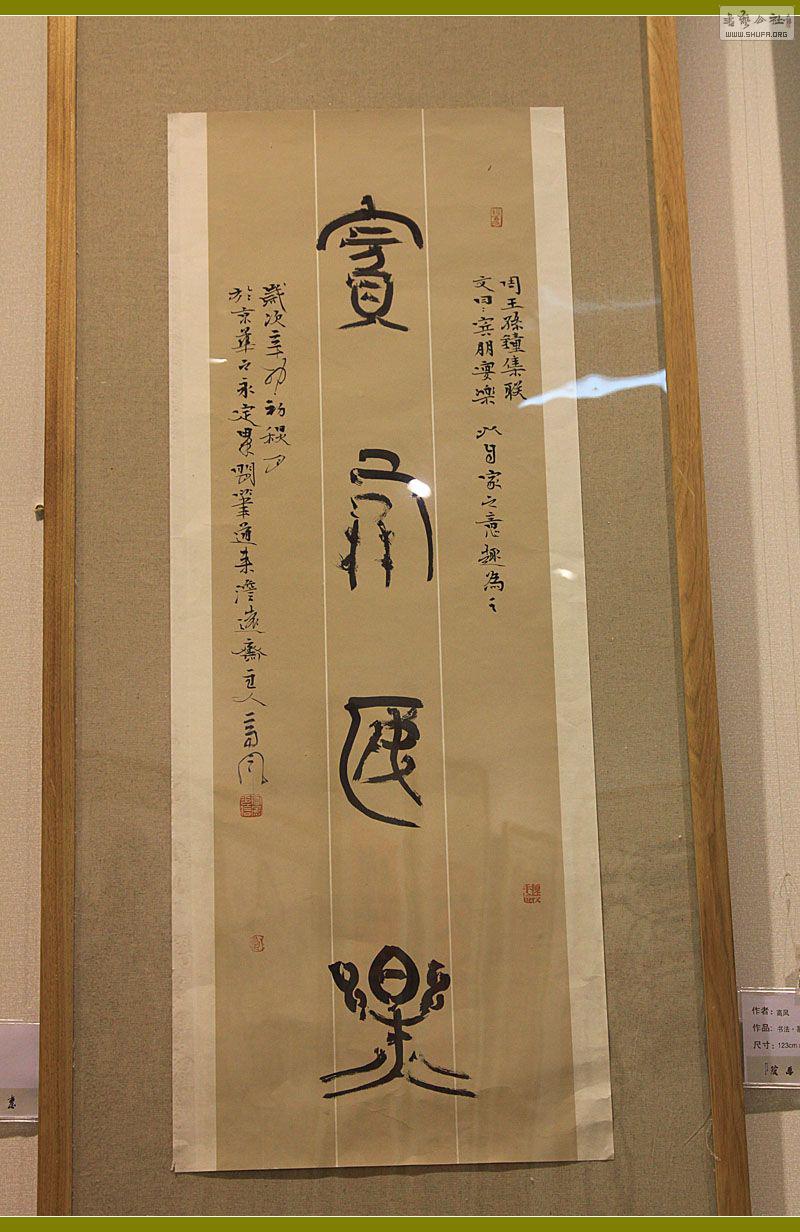 書藝公社
www.SHUFA.ORG
賓朋匽樂
周王孫鐘集联
文曰：宾朋宴樂 以自家之意趣為之
歲次辛卯初稘
於京華之永定 澄遠齋主人高風
作者：高风
作品：书法·
尺寸：123cm